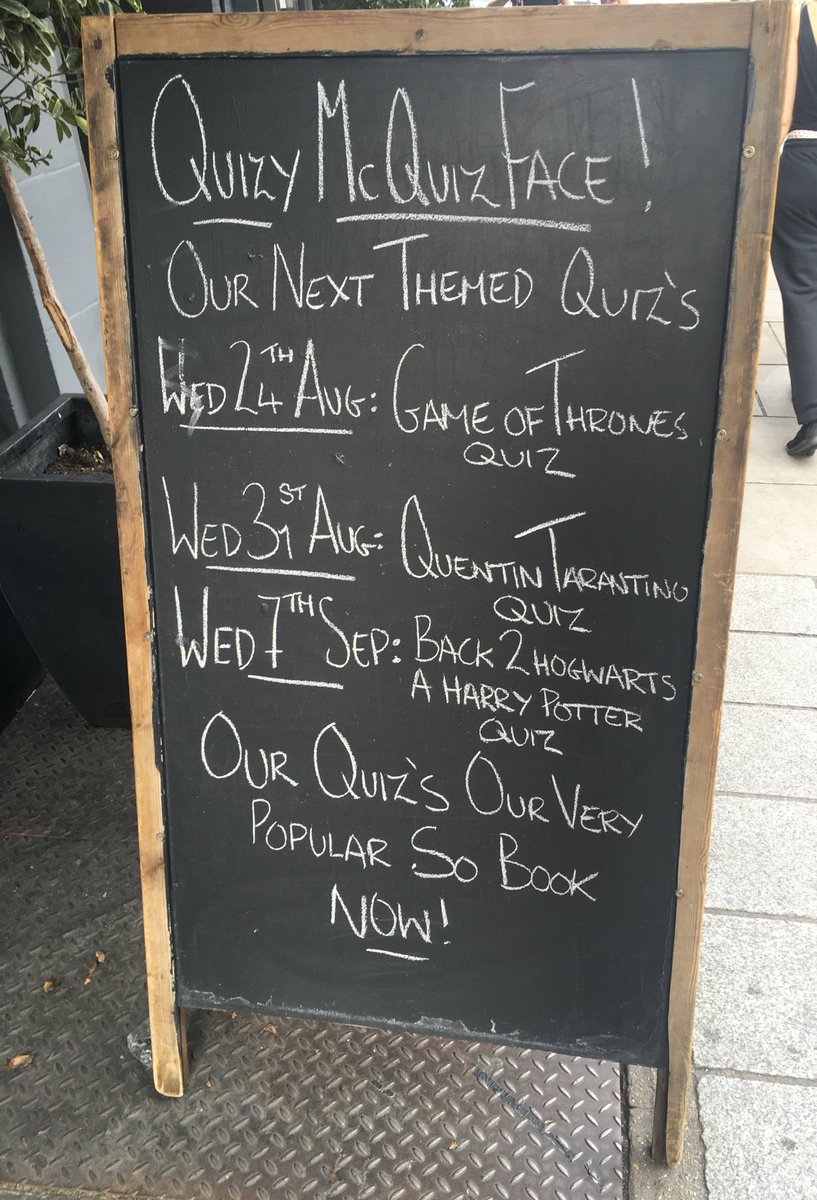 QUIZY MCQUIZFACE!
OUR NEXT THEMED QUIZ'S
WED 24TH AUG: GAME OF THRONES
QUIZ
WED 31ST AUG: QUENTIN TARANTINO
QUIZ
WED 7TH SEP: BACK 2 HOGWARTS
A HARRY POTTER
QUIZ
OUR QUIZ'S OUR VERY
POPULAR SO BOOK
NOW!